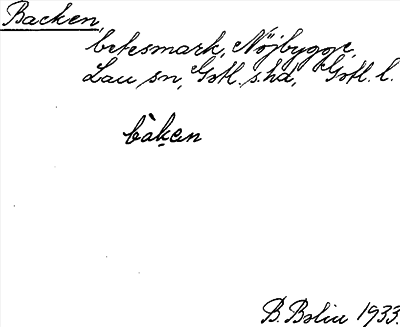 Backen,
betesmark, Nöjbygge,
Lau sn, Gotl. s. hd, Gotl. l.
bàken
B. Bolin 1933.